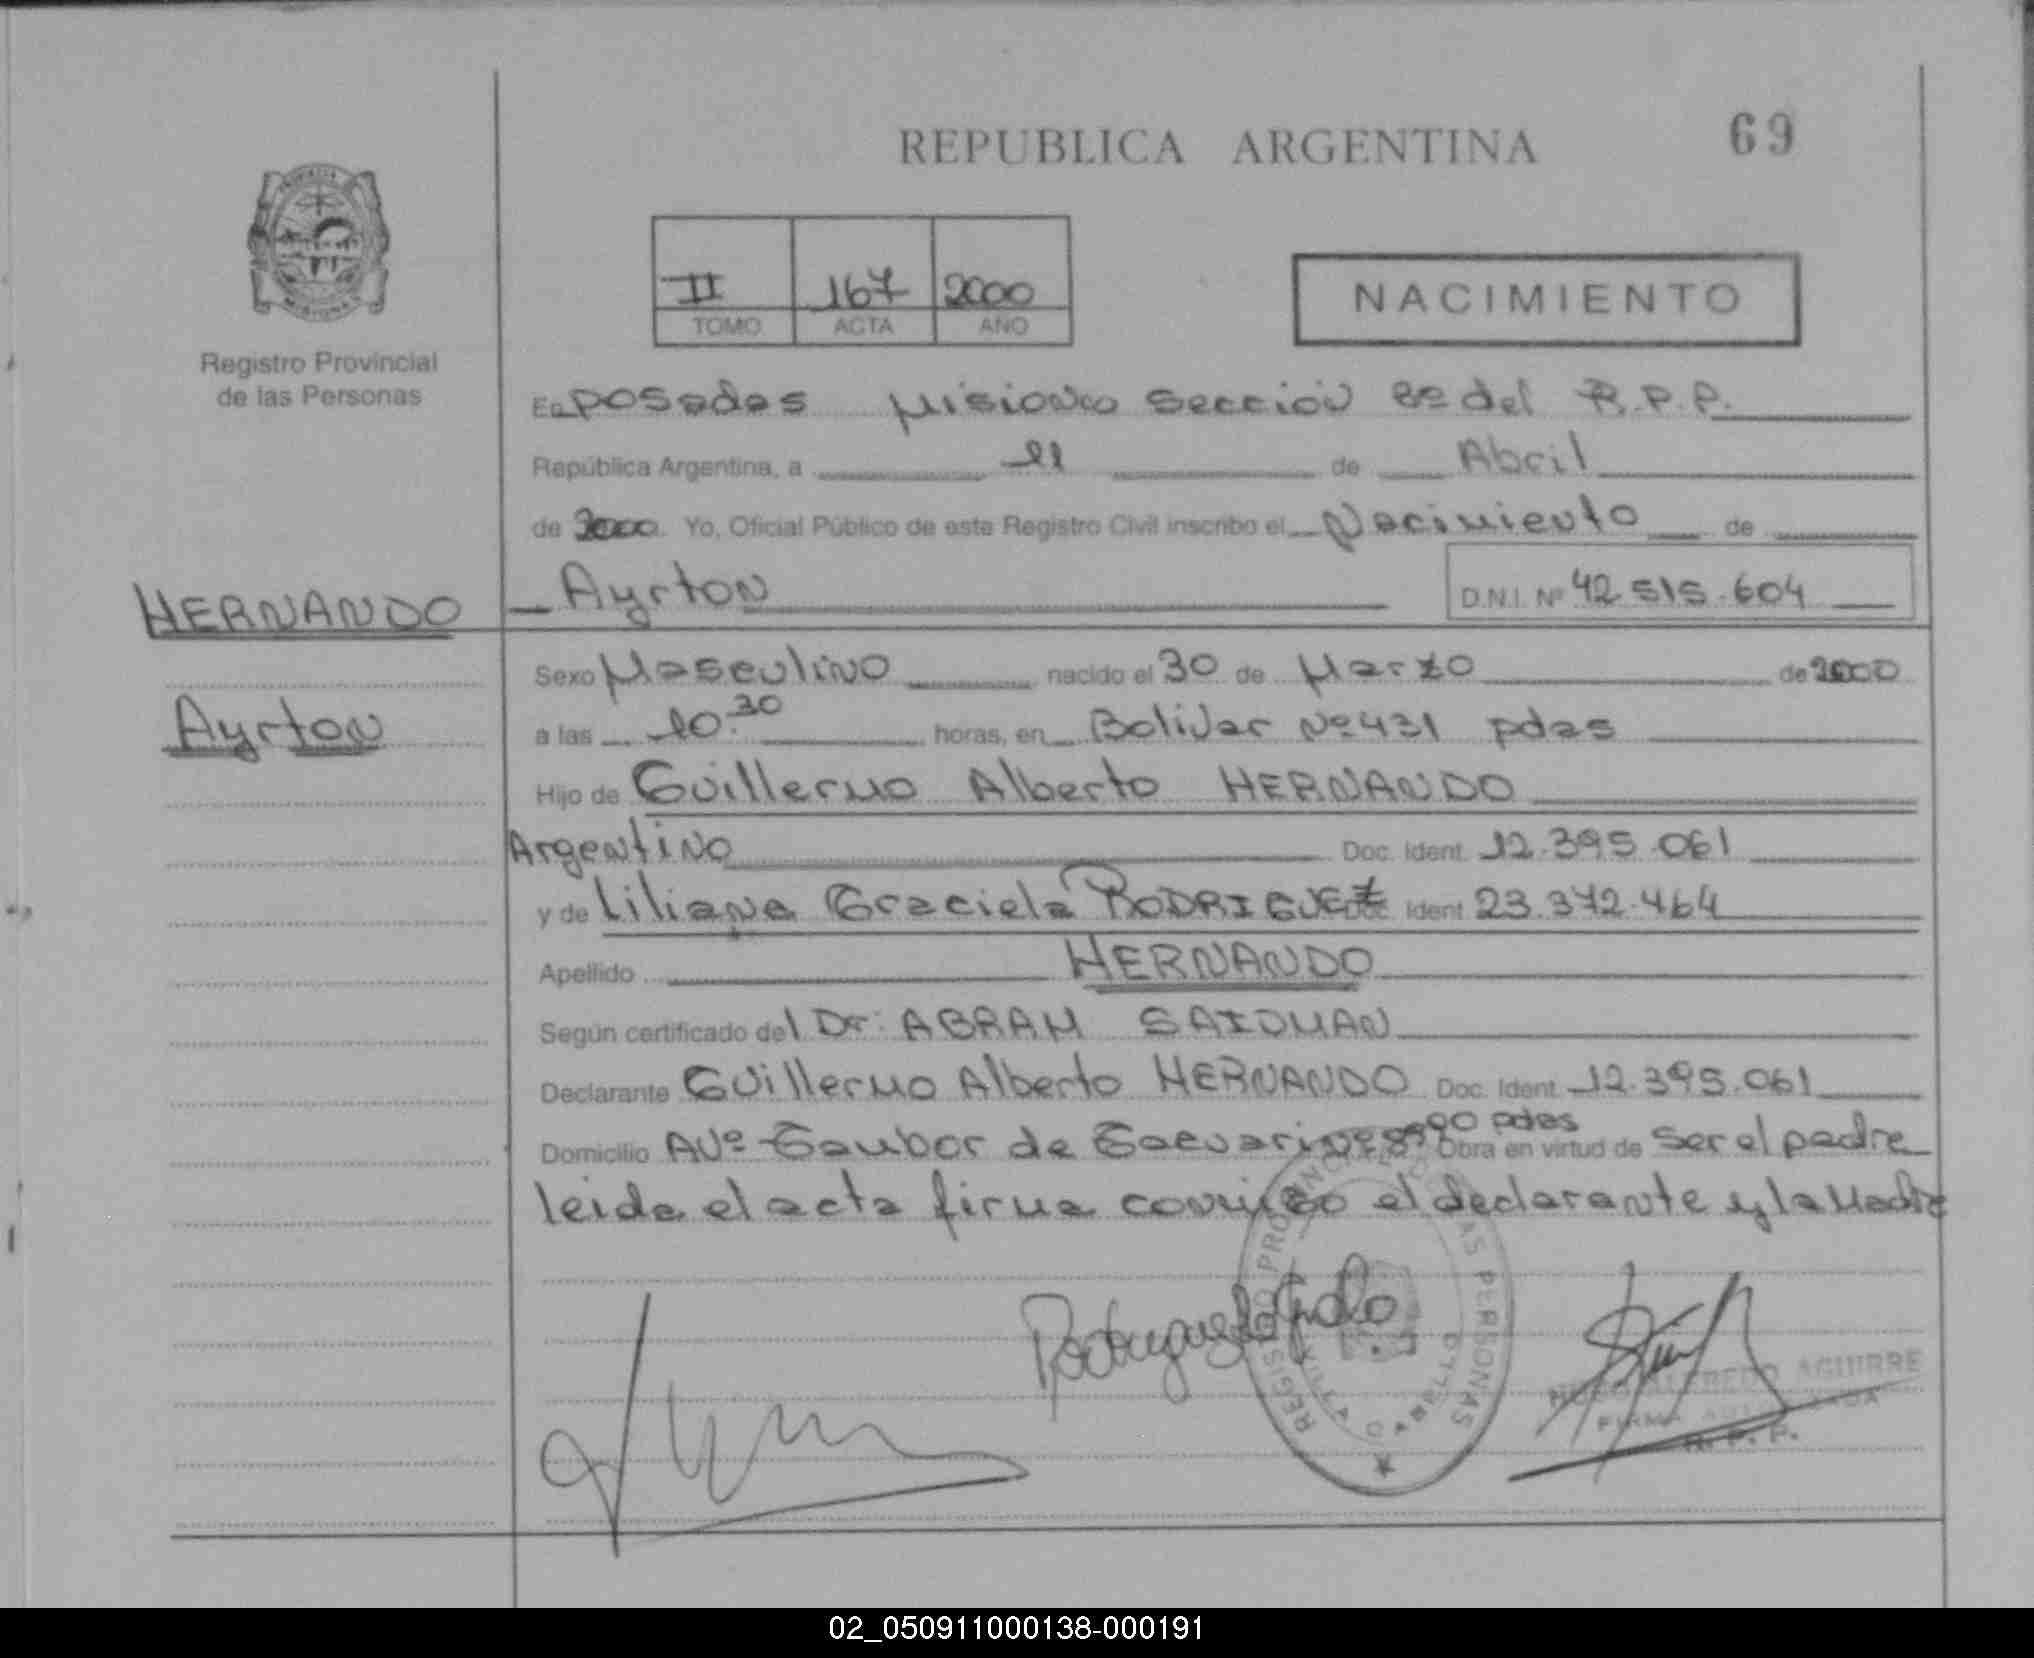 REPUBLICA ARGENTINA
69
II 167 2000
TOMO ACTA AÑO
NACIMIENTO
Registro Provincial
de las Personas
En Posadas Misiones Sección 8º del R.P.P.
República Argentina, a 11 de Abril
de 2000 Yo, Oficial Público de este Registro Civil inscribo el Nacimiento de
HERNANDO
Ayrton
Ayrton D.N.I. Nº 42.515.604
Sexo Masculino nacido el 30 de Marzo de 2000
a las 10.30 horas, en Bolivar Nº 431 pdas
Hijo de Guillermo Alberto HERNANDO
Argentino Doc. Ident. 12.395.061
y de Liliana Graciela RODRIGUEZ Doc. Ident. 23.372.464
Apellido HERNANDO
Según certificado del Dr. ABRAM SAIDMAN
Declarante Guillermo Alberto HERNANDO Doc. Ident. 12.395.061
Domicilio AVº de pdas Obra en virtud de ser el padre
leida el acta firma conmigo el declarante y la Madre
REGISTRO PROVINCIAL DE LAS PERSONAS
ALFREDO AGUIRRE
FIRMA AUTORIZADA
R.P.P.
02_050911000138-000191